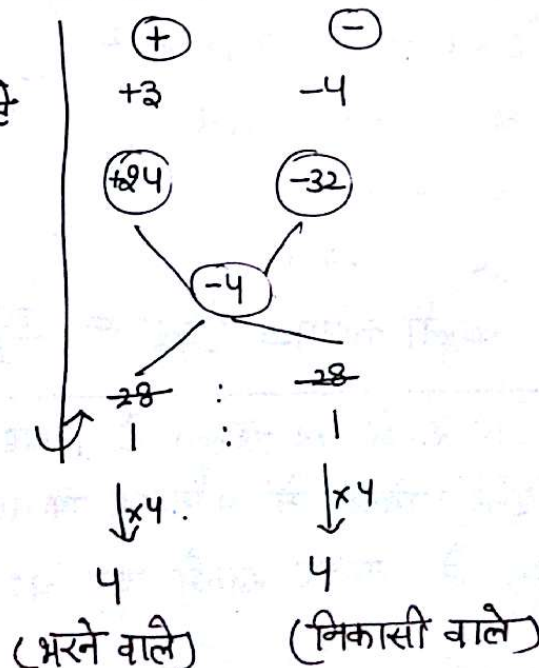 + −
+3 −4
+24 −32
−4
28 : 28
1 : 1
×4. ×4
4 4
(भरने वाले) (निकासी वाले)